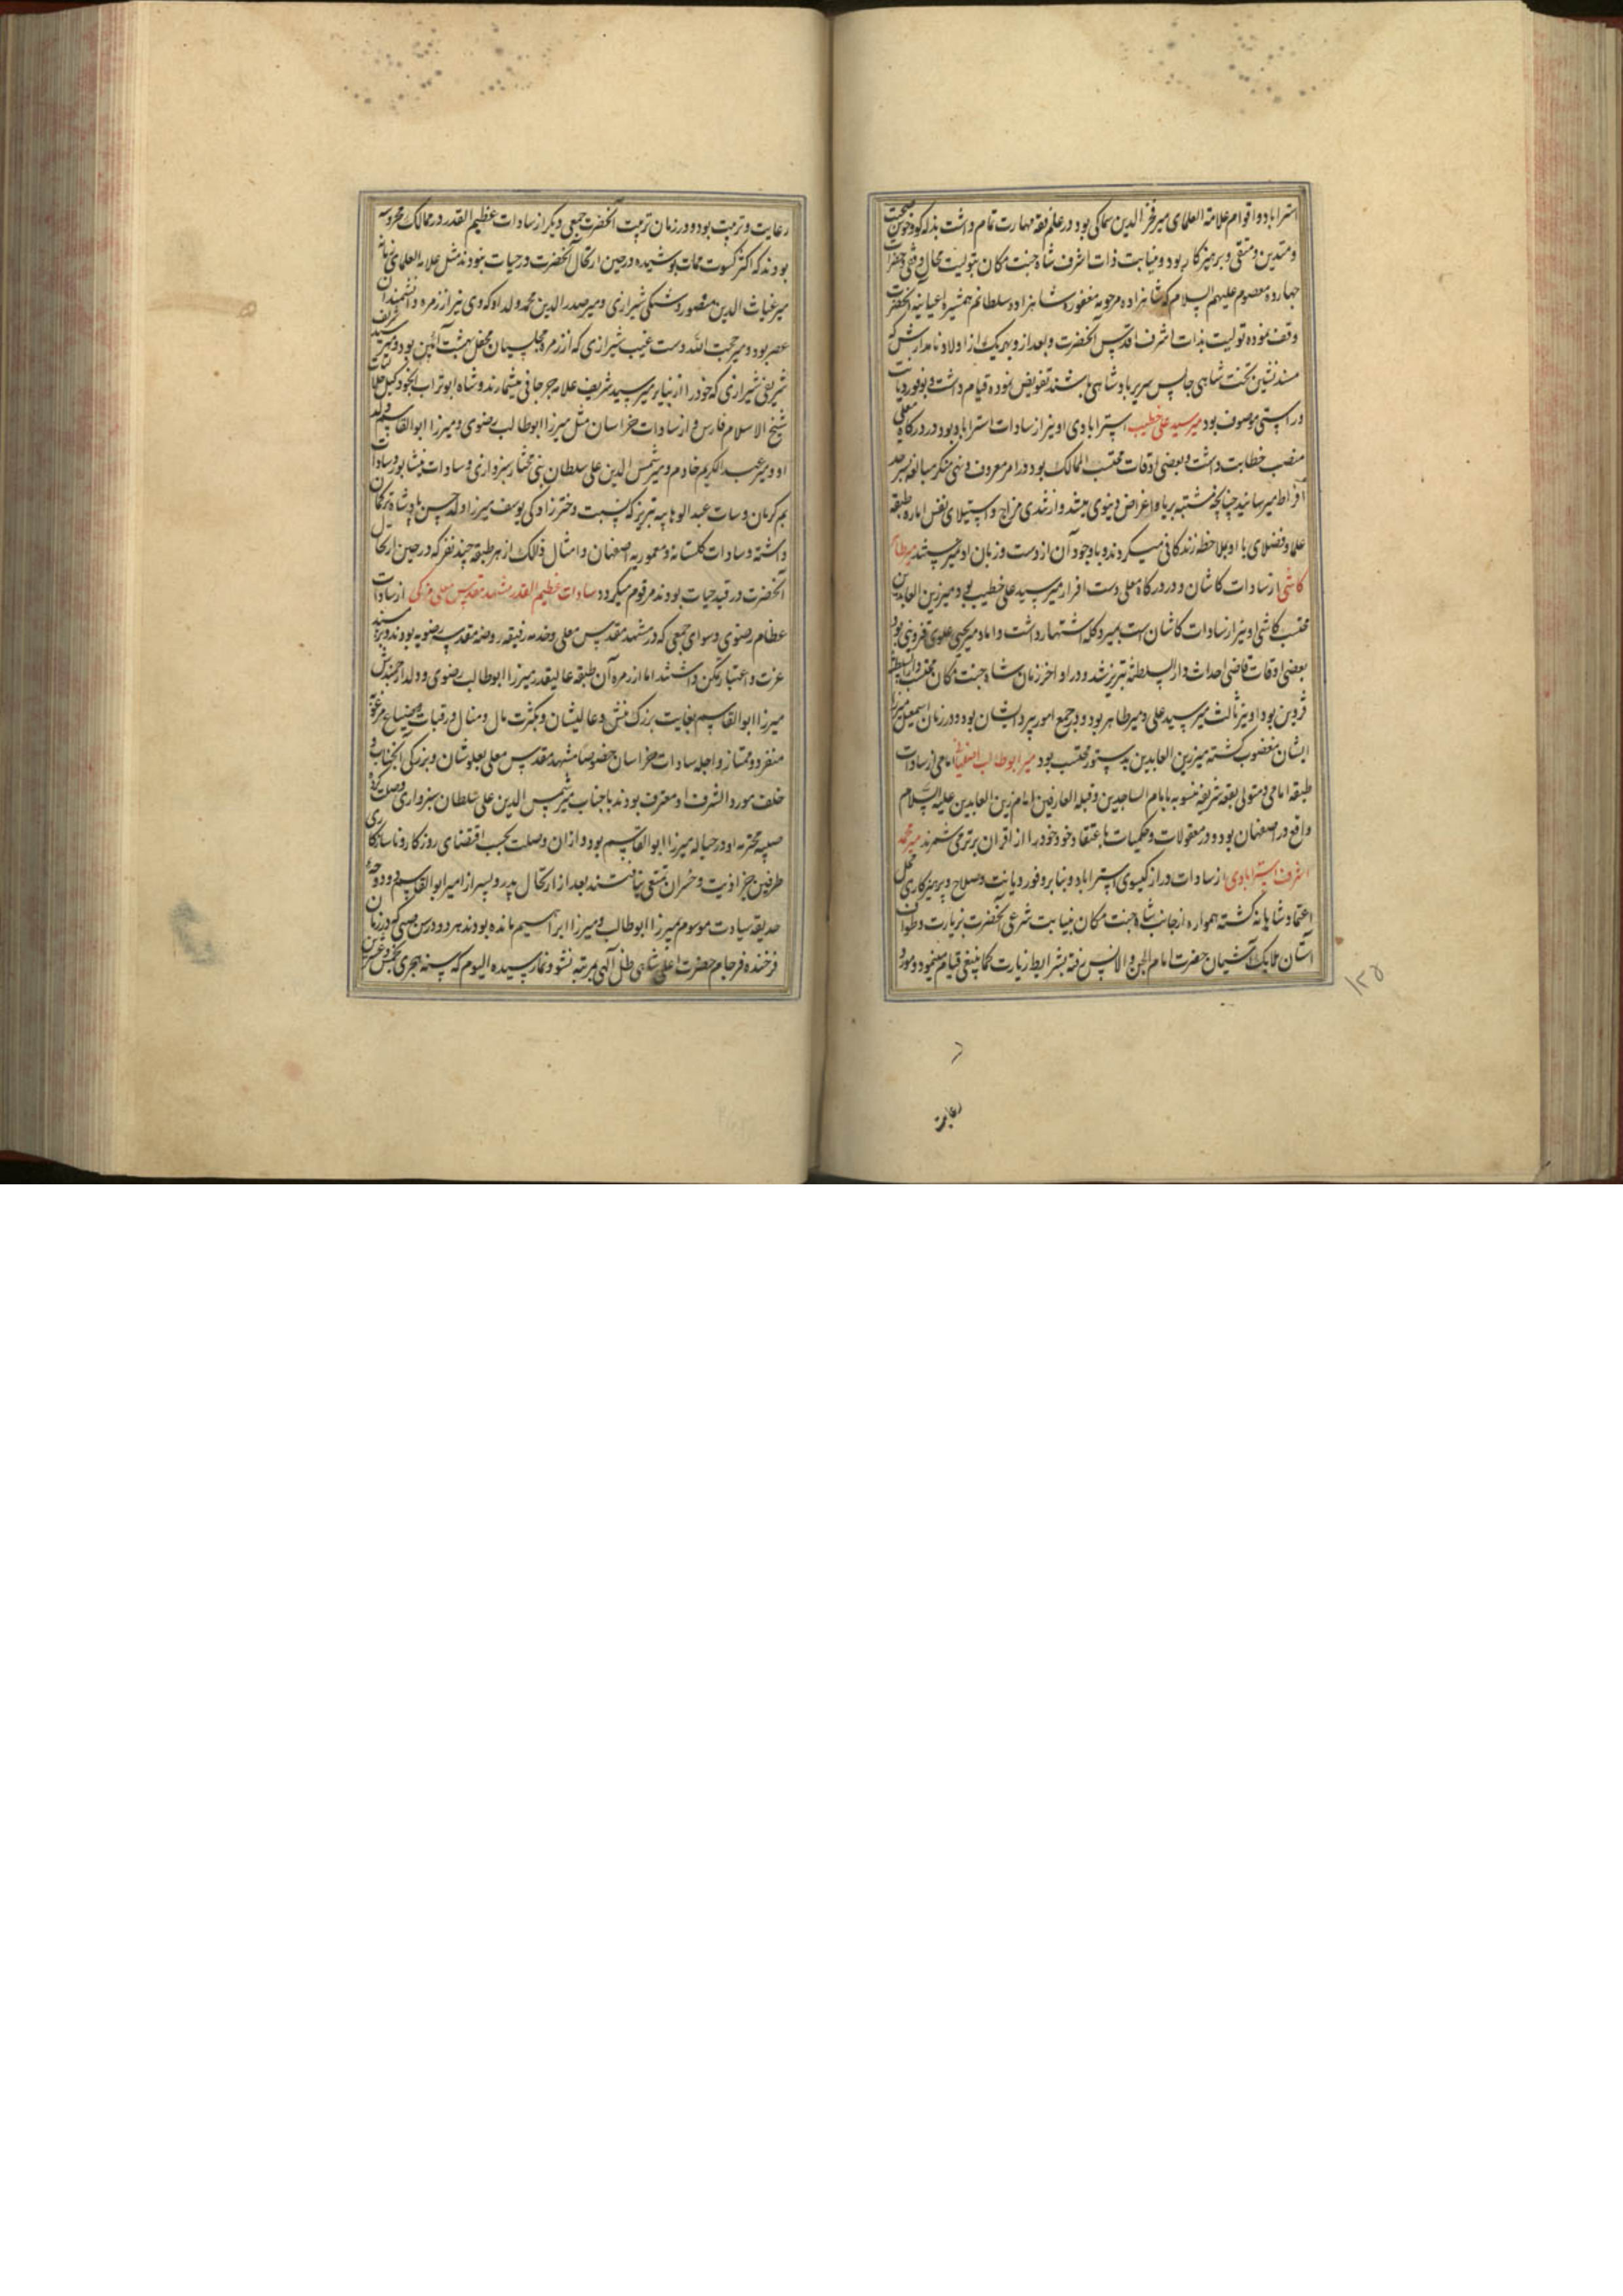 استراباد و اقوام علامة العلمای میر فخر الدین سماکی بود در علم فقه مهارت تمام داشت بذله گو و خوش صحبت
و متدین و متقی و پرهیزکار بود و نیابت ذات اشرف شاه جنت مکان بتولیت محال وقفی حضرات
چهارده معصوم علیهم السلام که شاهزاده مرحومه مغفوره شاهزاده سلطانم همشیره اعیانیه آنحضرت
وقف نموده تولیت بذات اشرف اقدس آنحضرت و بعد از و بهر یک از اولاد نامدارش که
مسند نشین تخت شاهی جالس سریر پادشاهی باشند تفویض نموده قیام داشت و بوفور دیانت
و راستی موصوف بود میر سید علی خطیب استرابادی او نیز از سادات استراباد بود در درگاه معلی
منصب خطابت داشت و بعضی اوقات محتسب الممالک بود در امر معروف و نهی منکر مبالغه بسرحد
افراط میرسانید چنانچه مشتبه بریا و اغراض دنیوی میشد و از تندی مزاج و استیلای نفس اماره طبقه
علما و فضلای با او بملاحظه زندگانی میکردند و باوجود آن از دست و زبان او نمیرستند میر طاهر
کاشی از سادات کاشان و در درگاه معلی دست افزار میر سید علی خطیب بود میر زین العابدین
محتسب کاشی او نیز از سادات کاشان است بمیر دکله اشتهار داشت داماد میر یحیی علوی قزوینی بود
بعضی اوقات قاضی احداث دار السلطنه تبریز شد و در اواخر زمان شاه جنت مکان محتسب دار السلطنه
قزوین بود او نیز ثالث میر سید علی و میر طاهر بود و در جمع امور پیرو ایشان بود و در زمان اسمعیل میرزا
ایشان مغضوب گشته میر زین العابدین بدستور محتسب بود میر ابوطالب اصفهانی امامی از سادات
طبقه امامی و متولی بقعه شریفه منسوبه بامام الساجدین و قبلة العارفین امام زین العابدین علیه السلام
واقع در اصفهان بود و در معقولات و حکمیات باعتقاد خود خود را از اقران برتر می شمرند میر محمد
اشرف استرابادی از سادات دراز گیسوی استراباد و بنا بر وفور دیانت و صلاح و پرهیزکاری محل
اعتماد شاهانه گشته همواره از جانب شاه جنت مکان بنیابت شرعی آنحضرت بزیارت و طواف
آستان ملایک آشیان حضرت امام الجن و الانس رفته بشرایط زیارت کما ینبغی قیام مینمود و مورد
۱۲۵
رعایت
رعایت و تربیت بود و در زمان تربیت آنحضرت جمعی دیگر از سادات عظیم القدر در ممالک محروسه
بودند که اکثر کسوت ممات پوشیده در حین ارتحال آنحضرت در حیات نبودند مثل علامه العلمای
میر غیاث الدین منصور دشتکی شیرازی و میر صدر الدین محمد ولد او که وی نیز از زمره دانشمندان
عصر بود و میر حبیب الله دست غیب شیرازی که از زمره مجلسیان محفل بهشت آئین بود و میر سید شریف
شریفی شیرازی که خود را از نبایر میر سید شریف علامه جرجانی میشمارند و شاه ابوتراب
شیخ الاسلام فارس و از سادات خراسان مثل میرزا ابوطالب رضوی و میرزا ابوالقاسم ولد
او و میر عبد الکریم خادم و میر شمس الدین علی سلطان بنی مختار سبزواری و سادات نیشابور و سادات
بم کرمان و سادات عبد الوهابیه تبریز که نسبت دخترزادگی یوسف میرزا ولد حسن پادشاه ترکمان
داشته و سادات گلستانه و معموریه اصفهان و امثال ذالک از هر طبقه چند نفر که در حین ارتحال
آنحضرت در قید حیات بودند مرقوم میگردد سادات عظیم القدر مشهد مقدس معلی مزکی از سادات
عظام رضوی و سوای جمعی که در مشهد مقدس معلی و خدمه رفیقه روضه مقدسه رضویه بودند و بر مسند
عزت و اعتبار تمکن داشتند اما از زمره آن طبقه عالیقدر میرزا ابوطالب رضوی و ولد ارجمندش
میرزا ابوالقاسم بغایت بزرگ منش و عالیشان و بکثرت مال و منال و رقبات و ضیاع مرغوبه
منفرد و ممتاز و اجله سادات خراسان خصوصا مشهد مقدس معلی بعلو شان و بزرگی آنجناب و
خلف مورد الشرف او معترف بودند با جناب میر شمس الدین علی سلطان سبزواری وصلت کرده
صبیه محترمه او در حباله میرزا ابوالقاسم بود و از ان وصلت بحسب اقتضای روزگار و ناسازگاری
طرفین جز اذیت و خسران تمتعی نیافتند بعد از ارتحال پدر و پسر از امیر ابوالقاسم دو دوحه
حدیقه سیادت موسوم بمیرزا ابوطالب و میرزا ابراهیم مانده بودند هر دو در سن صبی که در زمان
فرخنده فرجام حضرت اعلی شاهی ظل الهی بمرتبه نشو و نما رسیده الیوم که بسنه هجری بخمس و عشرین